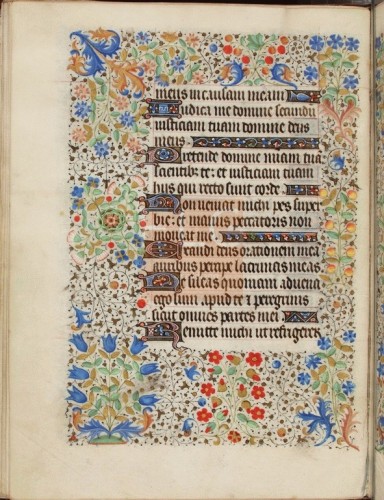 meus in causam meam
Iudica me domine secundu
iusticiam tuam domine deus
meus
Pretende domine miam tua
scientibus te: et iusticiam tuam
hiis qui recto sunt corde
Non veniat michi pes super
bie: et manus peccatoris non
moveat me
Exaudi deus orationem mea
auribus percipe lacrimas meas
Ne sileas quoniam advena
ego sum apud te et peregrinus
sicut omnes patres mei
Remitte michi ut refrigerer